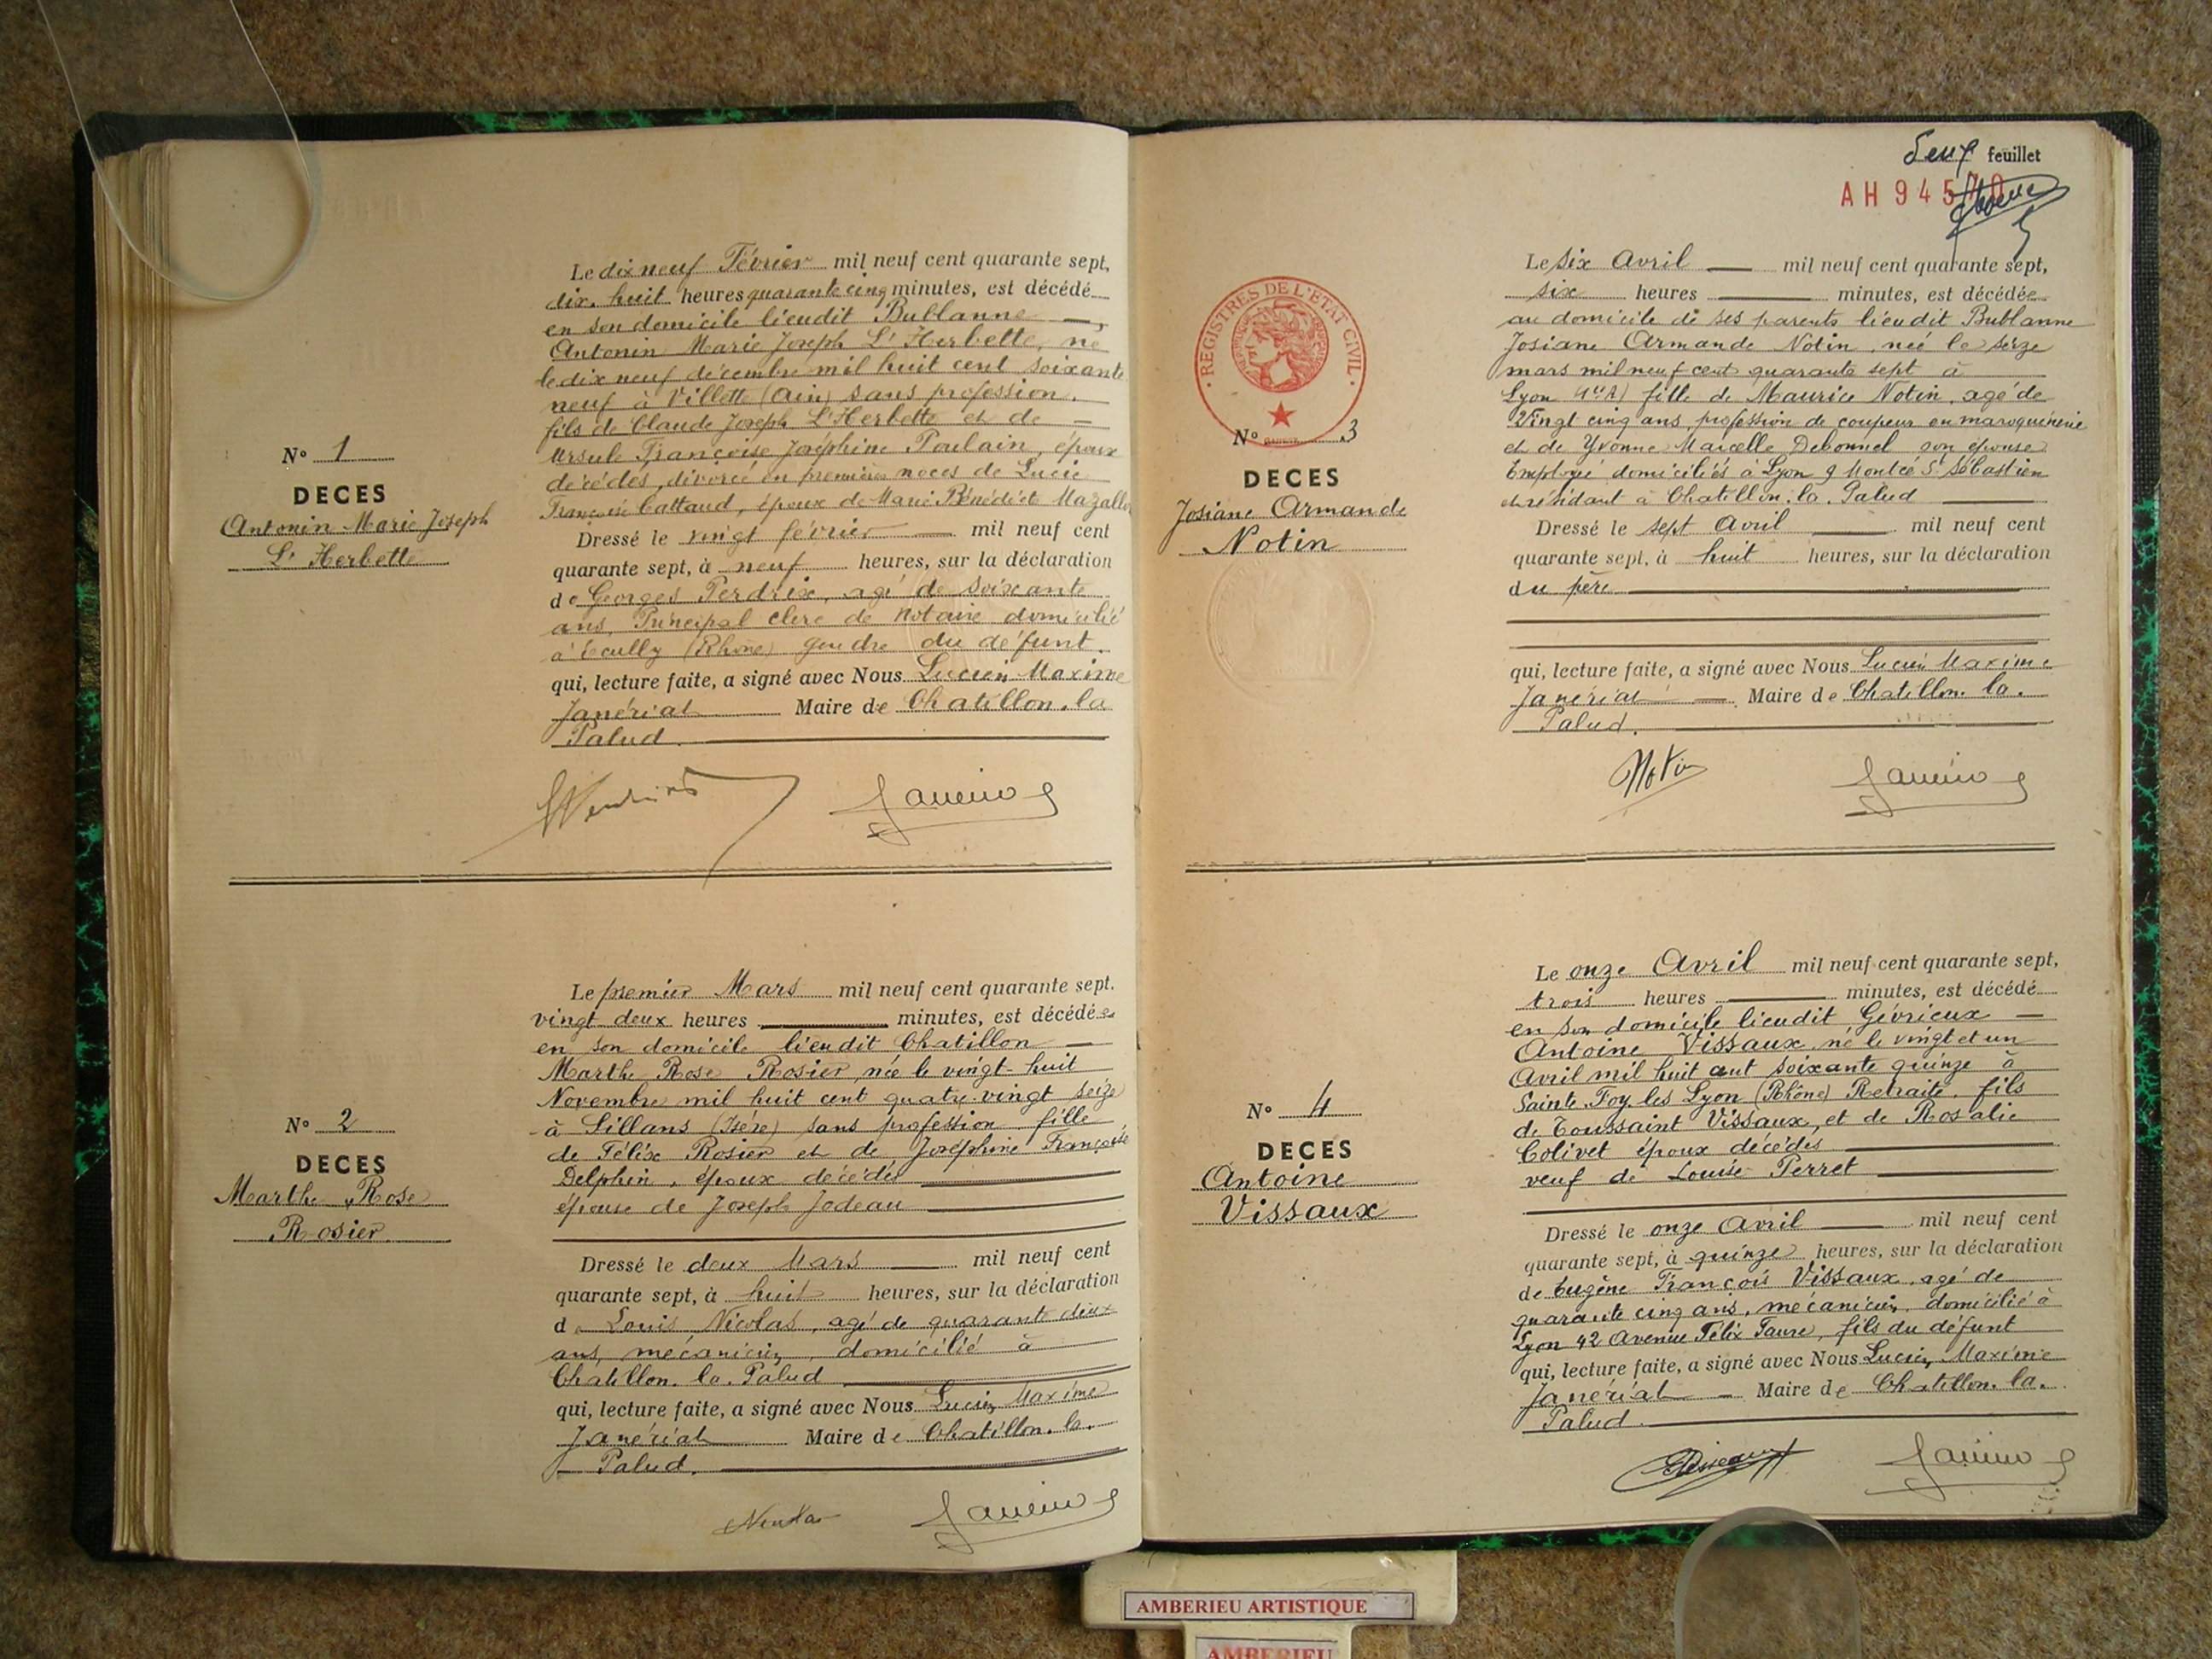 N° 1
DECES
Antonin Marie Joseph
L'Herbette
Le dix neuf Février mil neuf cent quarante sept,
dix huit heures quarante cinq minutes, est décédé
en son domicile lieudit Bublanne
Antonin Marie Joseph L'Herbette, né
le dix neuf décembre mil huit cent soixante
neuf à Villette (Ain) sans profession,
fils de Claude Joseph L'Herbette et de
Ursule Françoise Joséphine Poulain, époux
décédés, divorcé en premières noces de Lucie
Françoise Cattaud, époux de Marie Bénédicte
Dressé le vingt février mil neuf cent
quarante sept, à neuf heures, sur la déclaration
de Georges Perdrix, agé de soixante
ans, Principal clerc de Notaire domicilié
à Ecully (Rhône) gendre du défunt.
qui, lecture faite, a signé avec Nous Lucien Maxime
Janérial Maire de Chatillon.la
Palud.
N° 2
DECES
Marthe Rose
Rosier
Le premier Mars mil neuf cent quarante sept.
vingt deux heures minutes, est décédée
en son domicile lieudit Chatillon
Marthe Rose Rosier, née le vingt-huit
Novembre mil huit cent quatre-vingt seize
à Sillans (Isère) sans profession fille
de Félix Rosier et de Joséphine Françoise
Delphin, époux décédés
épouse de Joseph Jodeau
Dressé le deux Mars mil neuf cent
quarante sept, à huit heures, sur la déclaration
de Louis Nicolas, agé de quarante deux
ans, mécanicien, domicilié à
Chatillon.la.Palud
qui, lecture faite, a signé avec Nous Lucien Maxime
Janérial Maire de Chatillon.la.
Palud.
feuillet
AH 94570
REGISTRES DE L'ETAT CIVIL
N° 3
DECES
Josiane Armande
Notin
Le six Avril mil neuf cent quarante sept,
six heures minutes, est décédée
au domicile de ses parents lieudit Bublanne
Josiane Armande Notin, née le seize
mars mil neuf cent quarante sept à
Lyon fille de Maurice Notin, agé de
Vingt cinq ans, profession de coupeur en maroquinerie
et de Yvonne Marcelle Debonnel son épouse
Employé domiciliés à Lyon 9 Montée St Sébastien
et résidant à Chatillon.la.Palud
Dressé le sept Avril mil neuf cent
quarante sept, à huit heures, sur la déclaration
du père
qui, lecture faite, a signé avec Nous Lucien Maxime
Janérial Maire de Chatillon.la.
Palud.
Notin
N° 4
DECES
Antoine
Vissaux
Le onze Avril mil neuf cent quarante sept,
trois heures minutes, est décédé
en son domicile lieudit Gévrieux
Antoine Vissaux né le vingt et un
Avril mil huit cent soixante quinze à
Sainte.Foy.les Lyon (Rhône) Retraité, fils
de Toussaint Vissaux, et de Rosalie
Colivet époux décédés
veuf de Louise Perret
Dressé le onze Avril mil neuf cent
quarante sept, à quinze heures, sur la déclaration
de Eugène François Vissaux, agé de
quarante cinq ans, mécanicien, domicilié à
Lyon 42 Avenue Félix Faure, fils du défunt
qui, lecture faite, a signé avec Nous Lucien Maxime
Janérial Maire de Chatillon.la.
Palud.
AMBERIEU ARTISTIQUE
AMBERIEU